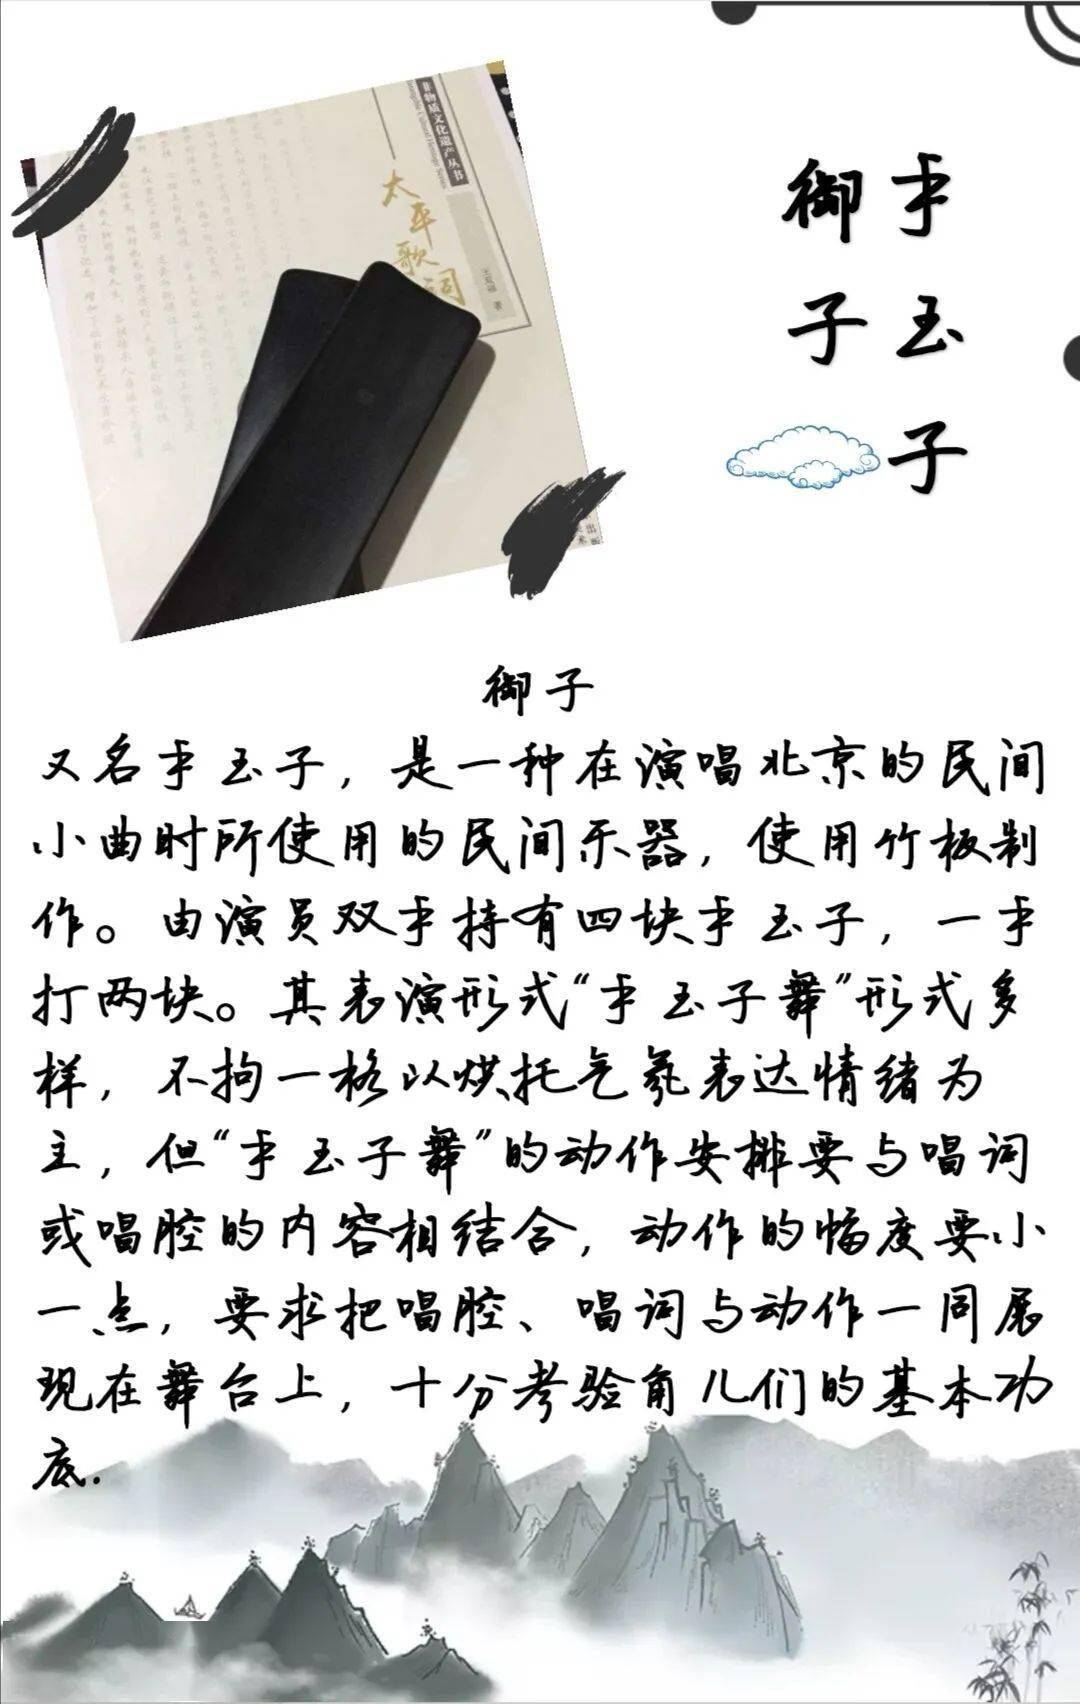 手玉子
御子
非物质文化遗产丛书
太平歌词
王双福 著
御子
又名手玉子，是一种在演唱北京的民间
小曲时所使用的民间乐器，使用竹板制
作。由演员双手持有四块手玉子，一手
打两块。其表演形式“手玉子舞”形式多
样，不拘一格以烘托气氛表达情绪为
主，但“手玉子舞”的动作安排要与唱词
或唱腔的内容相结合，动作的幅度要小
一点，要求把唱腔、唱词与动作一同展
现在舞台上，十分考验角儿们的基本功
底.